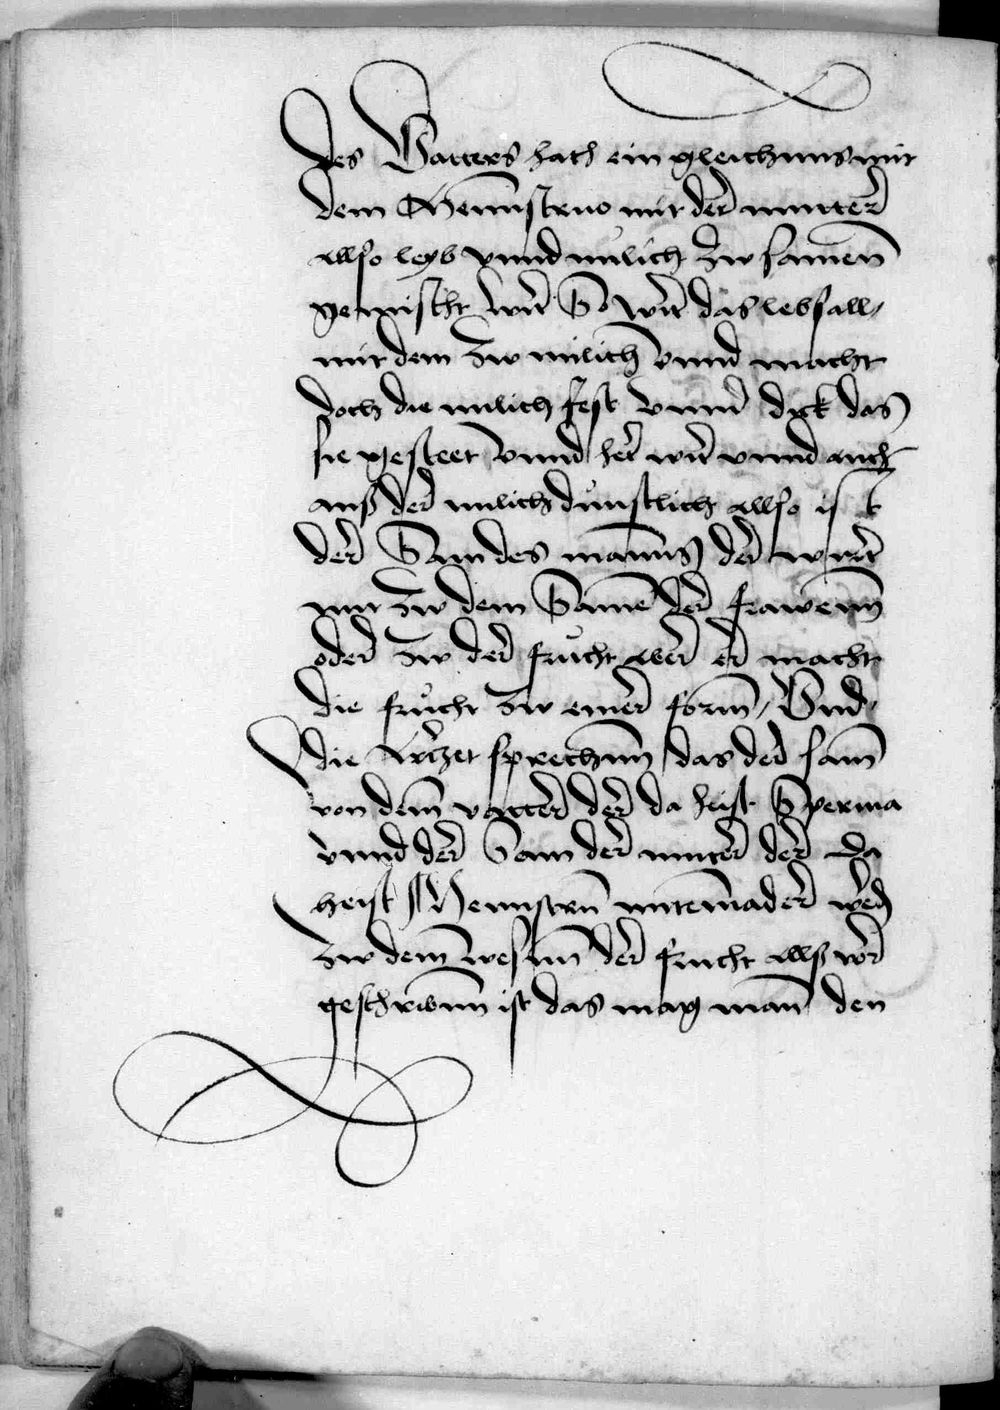 des Vatters hath ein gleichnus mit
dem Mennstruo mit der mutter
Allso leyb vnnd milich zw samen
gemischt wirt So wirt das lebsall
mit dem zw milich vnnd macht
doch die milich fest vnnd dyk das
sie gesteet vnnd hert wirt vnnd auch
auß der milich dunstlich Allso ist
der Sam des mannes der wirt
nit zw dem Samē der frawenn
oder zw der frucht aber er macht
die frucht zw einer form / Vnd
die Artzet sprechenn das der sam
von dem vatter der da heist Sperma
vnnd der Sam der muter der da
heist Menstruū mitteinnader werdē
zw dem wesenn der frucht Alls vor
geschribenn ist das mag man den